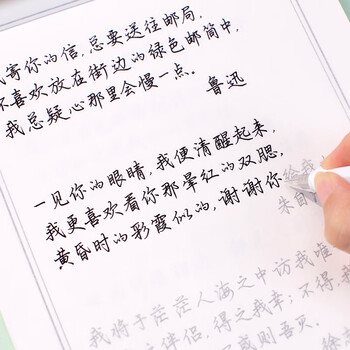 寄你的信,总要送往邮局,
喜欢放在街边的绿色邮筒中,
我总疑心那里会慢一点。
鲁迅
一见你的眼睛,我便清醒起来,
我更喜欢看你那晕红的双腮,
黄昏时的彩霞似的,谢谢你
给我
朱自
我将于茫茫人海之中访我唯
伴侣,得之我幸;不得,我